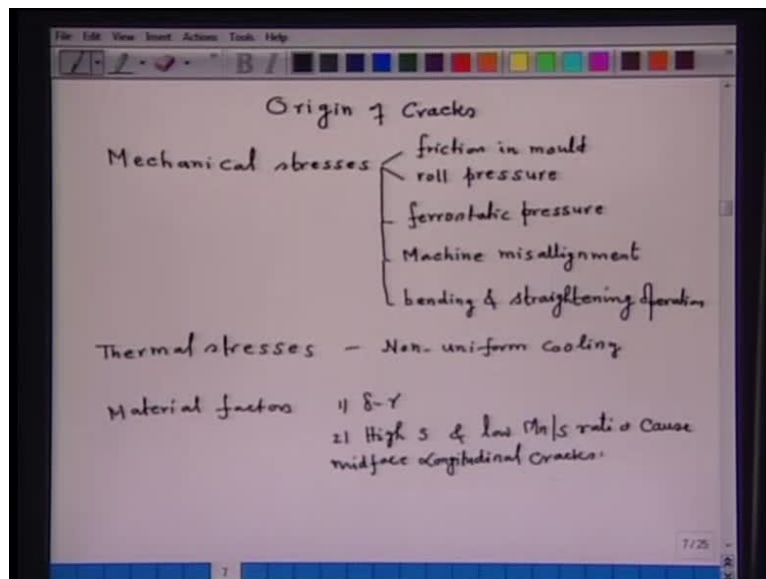 File Edit View Insert Actions Tools Help
B I
Origin of Cracks
Mechanical stresses
friction in mould
roll pressure
ferrostatic pressure
Machine misallignment
bending & straightening Operation
Thermal stresses - Non-uniform cooling
Material factors 1) δ-γ
2) High S & low Mn/S ratio Cause
midface Longitudinal Cracks.
7/25
7